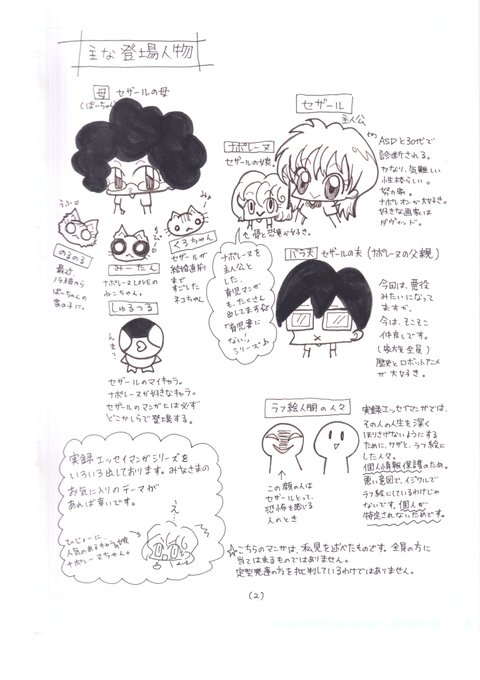 主な登場人物
母 セザールの母
(ばーちゃん)
セザール
主人公
ASDと30代で
診断される。
かなり、気難しい
性格らしい。
努力家。
ナポレオンが大好き。
好きな画家は
ダヴィッド。
ナポレーヌ
セザールの娘。
化石と恐竜が好き。
うふ♡
のるのる
最近
ノラ猫から
ばーちゃんの
家の子に。
みーたん
ナポレーヌLOVEの
ねこちゃん。
みゅ
くろちゃん
セザールが
結婚直前
まで
すごした
ネコちゃん
ナポレーヌを
主人公と
した、
育児マンガ
も、たくさん
出してます☆
「育児書に
ない。」
シリーズ♪
バラ夫 セザールの夫(ナポレーヌの父親)
今回は、悪役
みたいになって
ますが、
今は、そこそこ
仲良しです。
(家族全員)
歴史とロボットアニメ
が大好き。
しゅるつる
んま?
セザールのマイキャラ。
ナポレーヌが好きなキャラ。
セザールのマンガには必ず
どこかしらで登場する。
ラフ絵人間の人々
この顔の人は
セザールにとって、
恐怖を感じる
人のとき
実録エッセイマンガでは、
その人の人生を深く
ほりさげないようにする
ために、ワザと、ラフ絵に
した人々。
個人情報保護のため。
悪い意図で、イジワルで
ラフ絵にしているわけじゃ
ないです。個人が
特定されないためです。
実録エッセイマンガシリーズを
いろいろ出しております。みなさまの
お気に入りのテーマが
あれば幸いです。
え、
ひじょーに
人気のあるキャラの娘
ナポレーヌちゃん。
☆こちらのマンガは、私見を述べたものです。全員の方に
当てはまるものではありません。
定型発達の方を批判しているわけではありません。
(2)